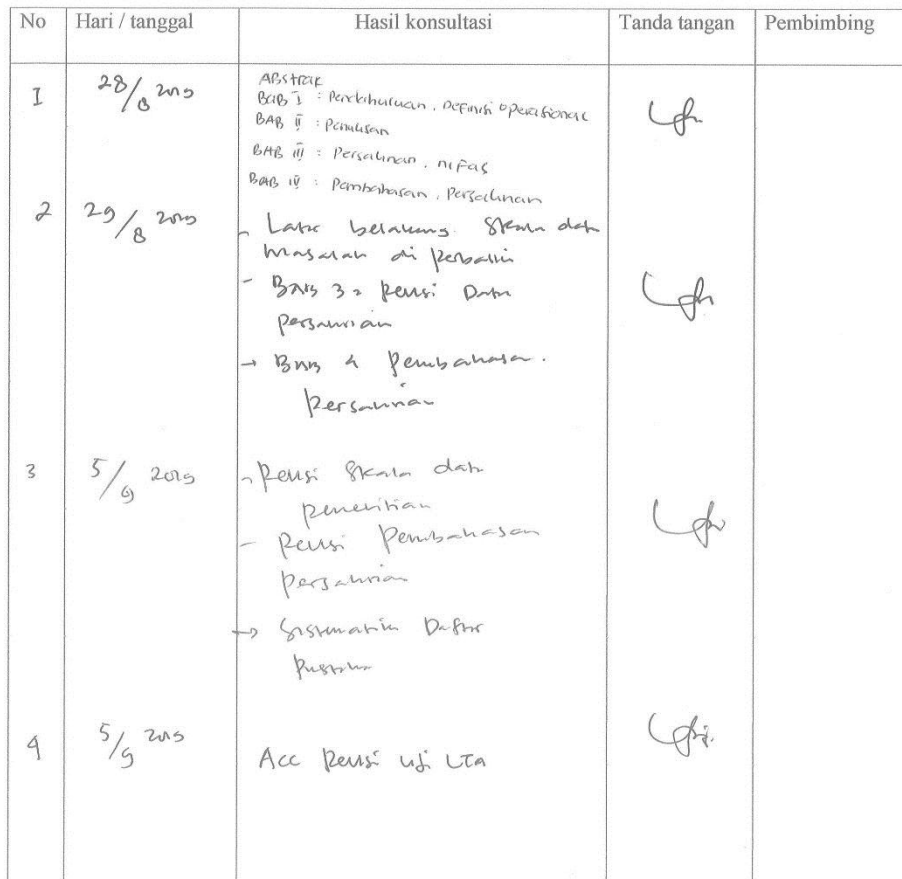 No Hari / tanggal Hasil konsultasi Tanda tangan Pembimbing
1 28/8 2019 ABSTRAK
BAB I : Pendahuluan, Definisi operasional
BAB II : Penulisan
BAB III : Persalinan, nifas
BAB IV : Pembahasan, Persalinan
2 29/8 2019 - Latar belakang skala dan
masalah di
- BAB 3 = Revisi Data
persalinan
→ BAB 4 Pembahasan.
Persalinan
3 5/9 2019 - Revisi Skala data
penelitian
- Revisi Pembahasan
persalinan
→ Sistematik Daftar
Pustaka
4 5/9 2019 Acc Revisi uji LTA